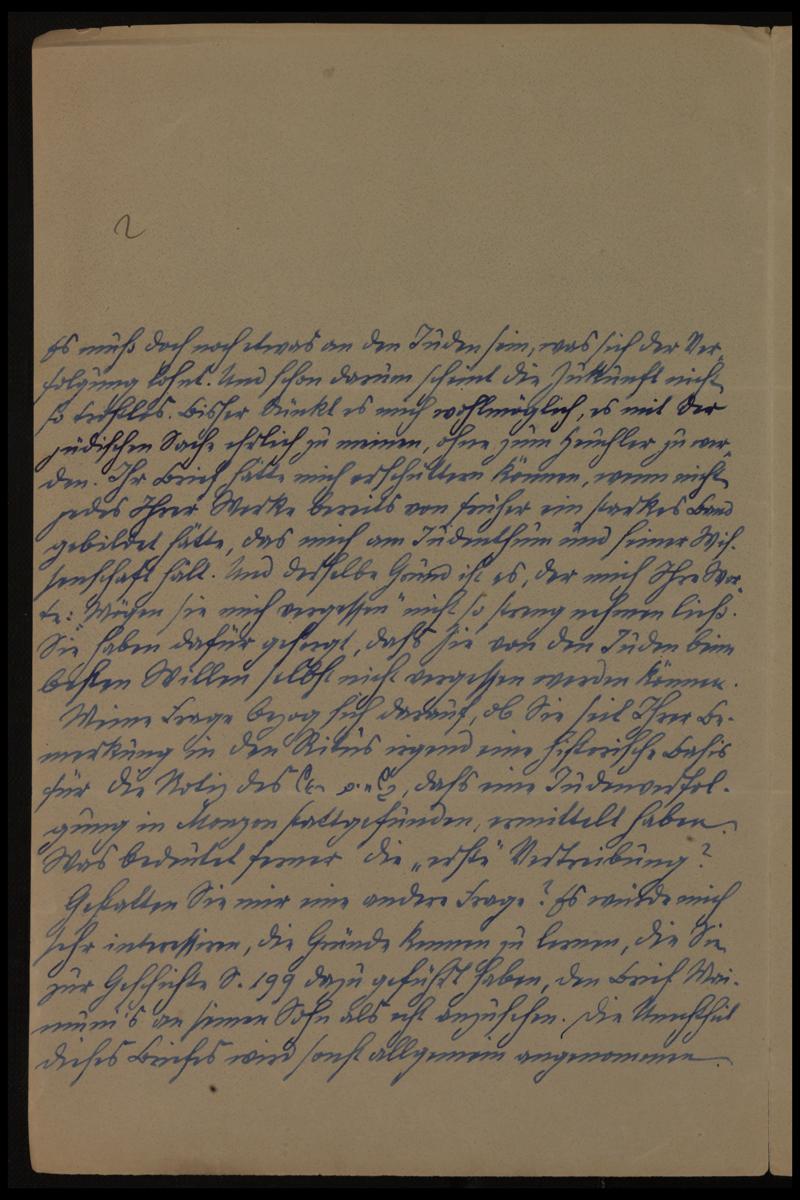 2
Es muß doch noch etwas an den Juden sein, was sich der Ver-
folgung lohnt. Und schon darum scheint die Zukunft nicht
so trostlos. Bisher dünkt es mich wohlmöglich, es mit der
jüdischen Sache ehrlich zu meinen, ohne zum Heuchler zu wer-
den. Ihr Brief hätte mich erschüttern können, wenn nicht
jedes Ihrer Werke bereits von früher ein starkes Band
gebildet hätte, das mich am Judenthum und seiner Wis-
senschaft hält. Und derselbe Grund ist es, der mich Ihre Wor-
te: „Mögen sie mich vergessen“ nicht so streng nehmen ließ.
Sie haben dafür gesorgt, daß Sie von den Juden beim
besten Willen selbst nicht vergessen werden können.
Meine Frage bezog sich darauf, ob Sie seit Ihrer Be-
merkung in den Ritus irgend eine historische Basis
für die Notiz des, daß eine Judenverfol-
gung in Monzon stattgefunden, ermittelt haben.
Was bedeutet ferner die „erste“ Vertreibung?
Gestatten Sie mir eine andere Frage? Es würde mich
sehr interessiren, die Gründe kennen zu lernen, die Sie
zur Geschichte S. 199 dazu geführt haben, den Brief Mai-
muni's an seinen Sohn als echt anzusehen. Die Unechtheit
dieses Briefes wird sonst allgemein angenommen.